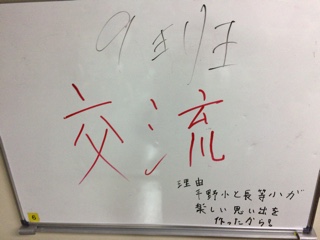 9班
交流
理由
平野小と長等小が
楽しい思い出を
作ったから!
6